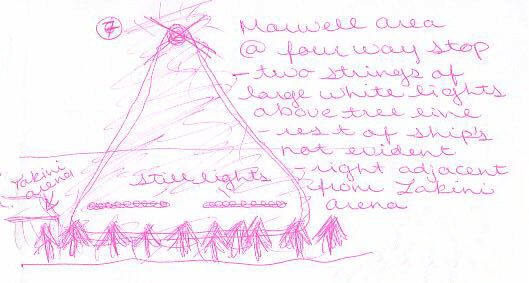 7
Maxwell area
@ four way stop
- two strings of
large white lights
above tree line
rest of ship's
not evident
- right adjacent
from Zakini
arena
Zakini
arena
still lights